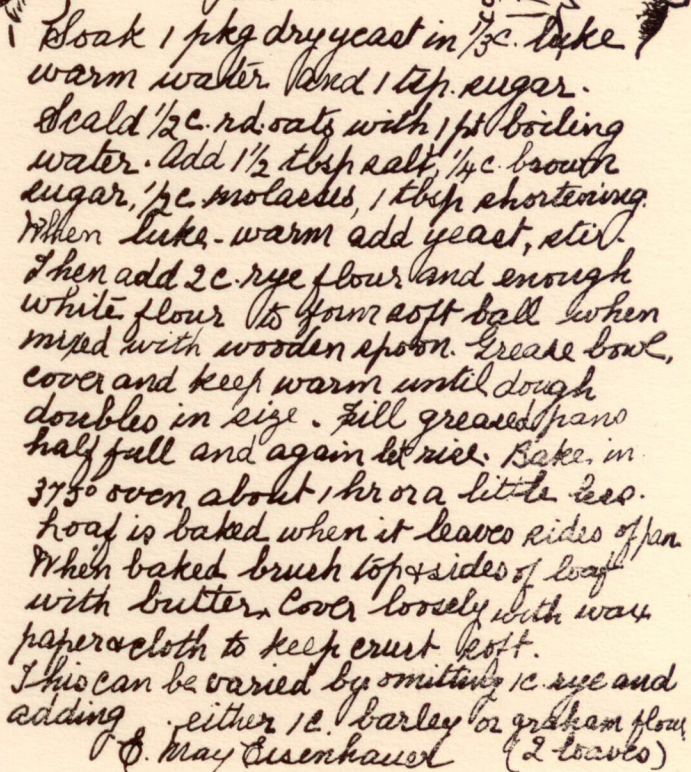 Soak 1 pkg dry yeast in 1/3 c. luke
warm water and 1 tsp. sugar.
Scald 1/2 c. rd. oats with 1 pt boiling
water. Add 1 1/2 tbsp salt, 1/4 c. brown
sugar, 1/2 c. molasses, 1 tbsp shortening.
When luke-warm add yeast, stir.
Then add 2 c. rye flour and enough
white flour to form soft ball when
mixed with wooden spoon. Grease bowl,
cover and keep warm until dough
doubles in size. Fill greased pans
half full and again let rise. Bake in
375° oven about 1 hr or a little less.
Loaf is baked when it leaves sides of pan.
When baked brush top & sides of loaf
with butter. Cover loosely with wax
paper & cloth to keep crust soft.
This can be varied by omitting 1 c. rye and
adding either 1 c. barley or graham flour
E. May Eisenhauer (2 loaves)